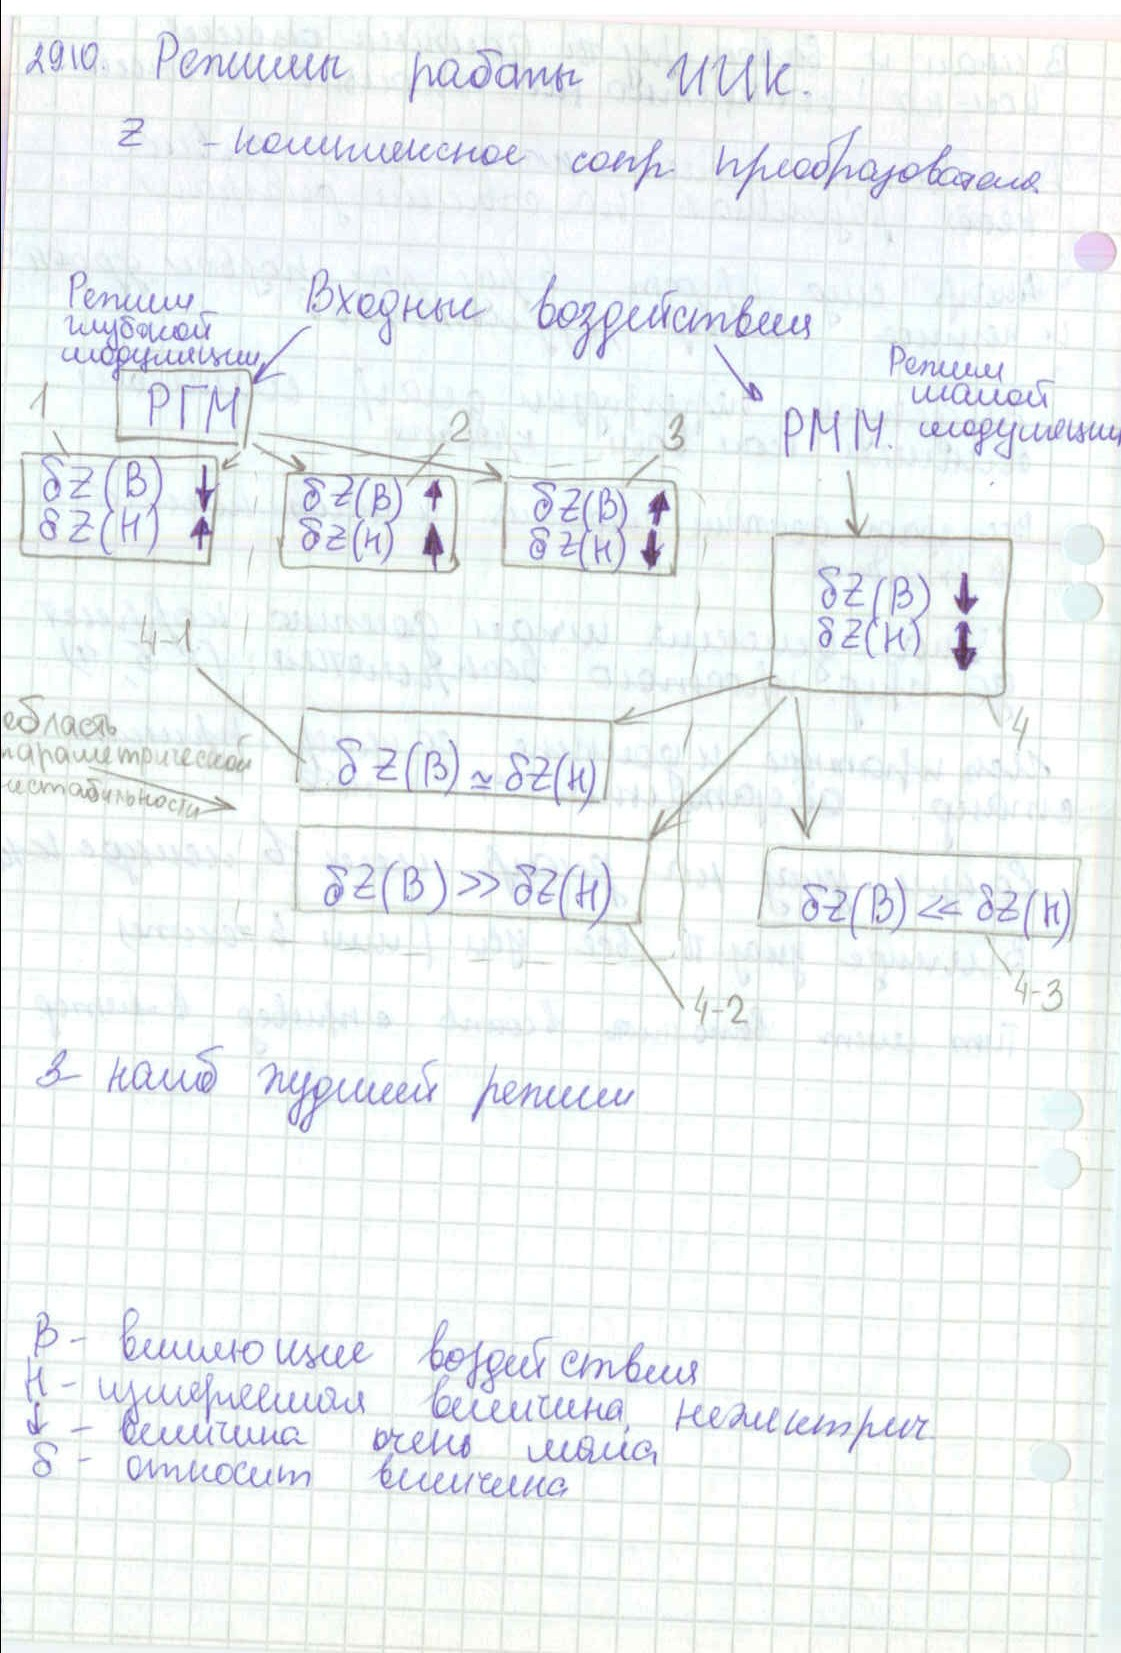 2910. Режимы работы ИИК.
Z - комплексное сопр. преобразователя
Входные воздействия
Режим
глубокой
модуляции
РГМ
Режим
малой
модуляции
РММ.
1
2
3
δZ(В) ↓
δZ(Н) ↑
δZ(В) ↑
δZ(Н) ↑
δZ(В) ↑
δZ(Н) ↓
δZ(В) ↓
δZ(Н) ↕
4
4-1
область
параметрической
нестабильности
δZ(В) ≃ δZ(Н)
δZ(В) >> δZ(Н)
δZ(В) << δZ(Н)
4-2
4-3
3- наиб худший режим
В - влияющие воздействия
Н - измеряемая величина, неэлектрич.
↓ - величина очень мала
δ - относит величина